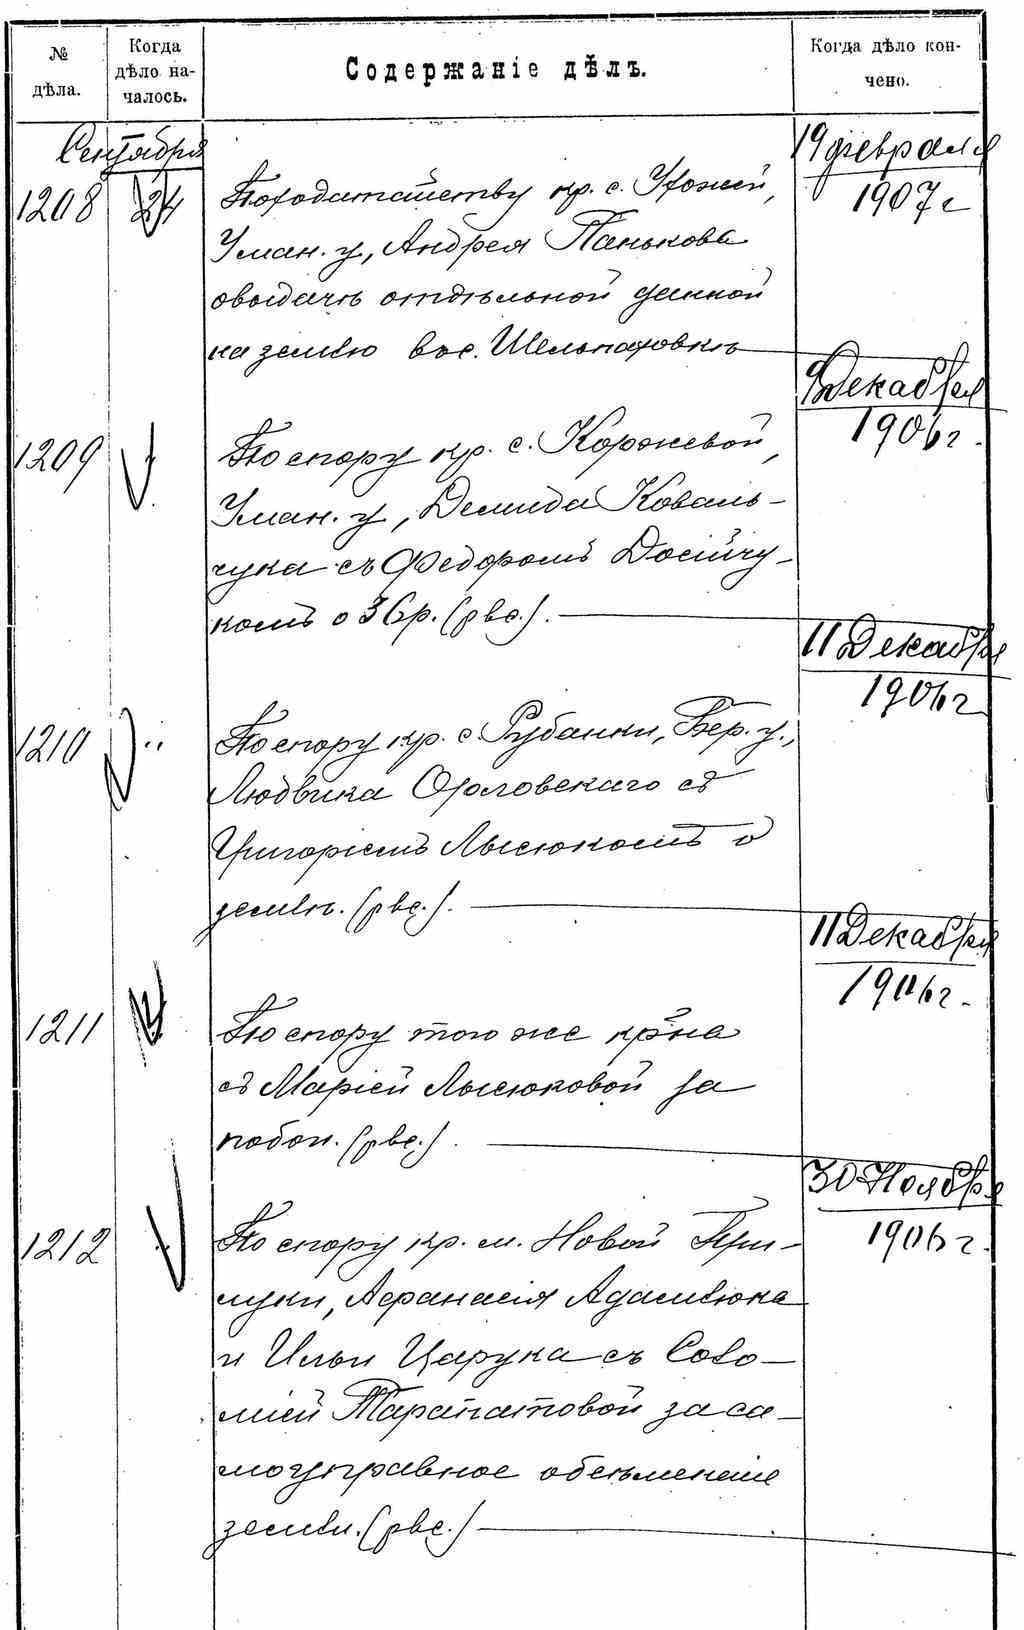 № дѣла.
Когда дѣло на-
чалось.
Содержаніе дѣлъ.
Когда дѣло кон-
чено.
Сентября
1208 24
По ходатайству кр. с.
Уман. у, Андрея Панькова
о выдачѣ отдѣльной данной
на землю въ с. Шельпаховкѣ
19 февраля
1907 г
1209
По спору кр. с. Коржевой,
Уман. у, Демида Коваль-
чука съ Федоромъ Досійчу-
комъ о 36 р. (рвс.).
9 Декабря
1906 г.
1210
По спору кр. с. Рубанки, Бер. у.,
Людвика Орловскаго съ
Григоріемъ Лысюкомъ о
землѣ. (рвс.).
11 Декабря
1906 г
1211
По спору того же кр-на
съ Маріей Лысюковой за
побои. (рвс.).
11 Декабря
1906 г.
1212
По спору кр. м. Новой При-
луки, Афанасія Адамлюка
и Ильи Царука съ Соло-
міей Тарапатовой за са-
моуправное обсѣмененіе
земли. (рвс.)
30 Ноября
1906 г.